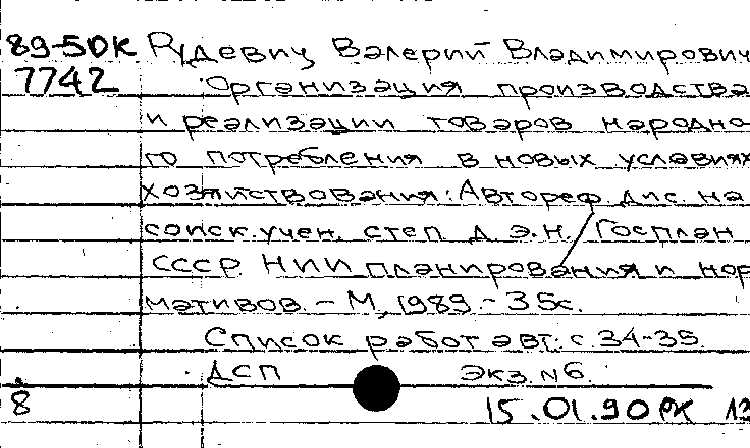 89-5DK Рудевич Валерий Владимирович
7742 Организация производства
и реализации товаров народно
го потребления в новых условиях
хозяйствования: Автореф дис. на
соиск. учен. степ. д. э.н. / Госплан
СССР. НИИ планирования и нор
мативов. - М, 1989. - 35с.
Список работ авт.: с. 34-35.
ДСП экз. N 6.
8 15.01.90 РК 13